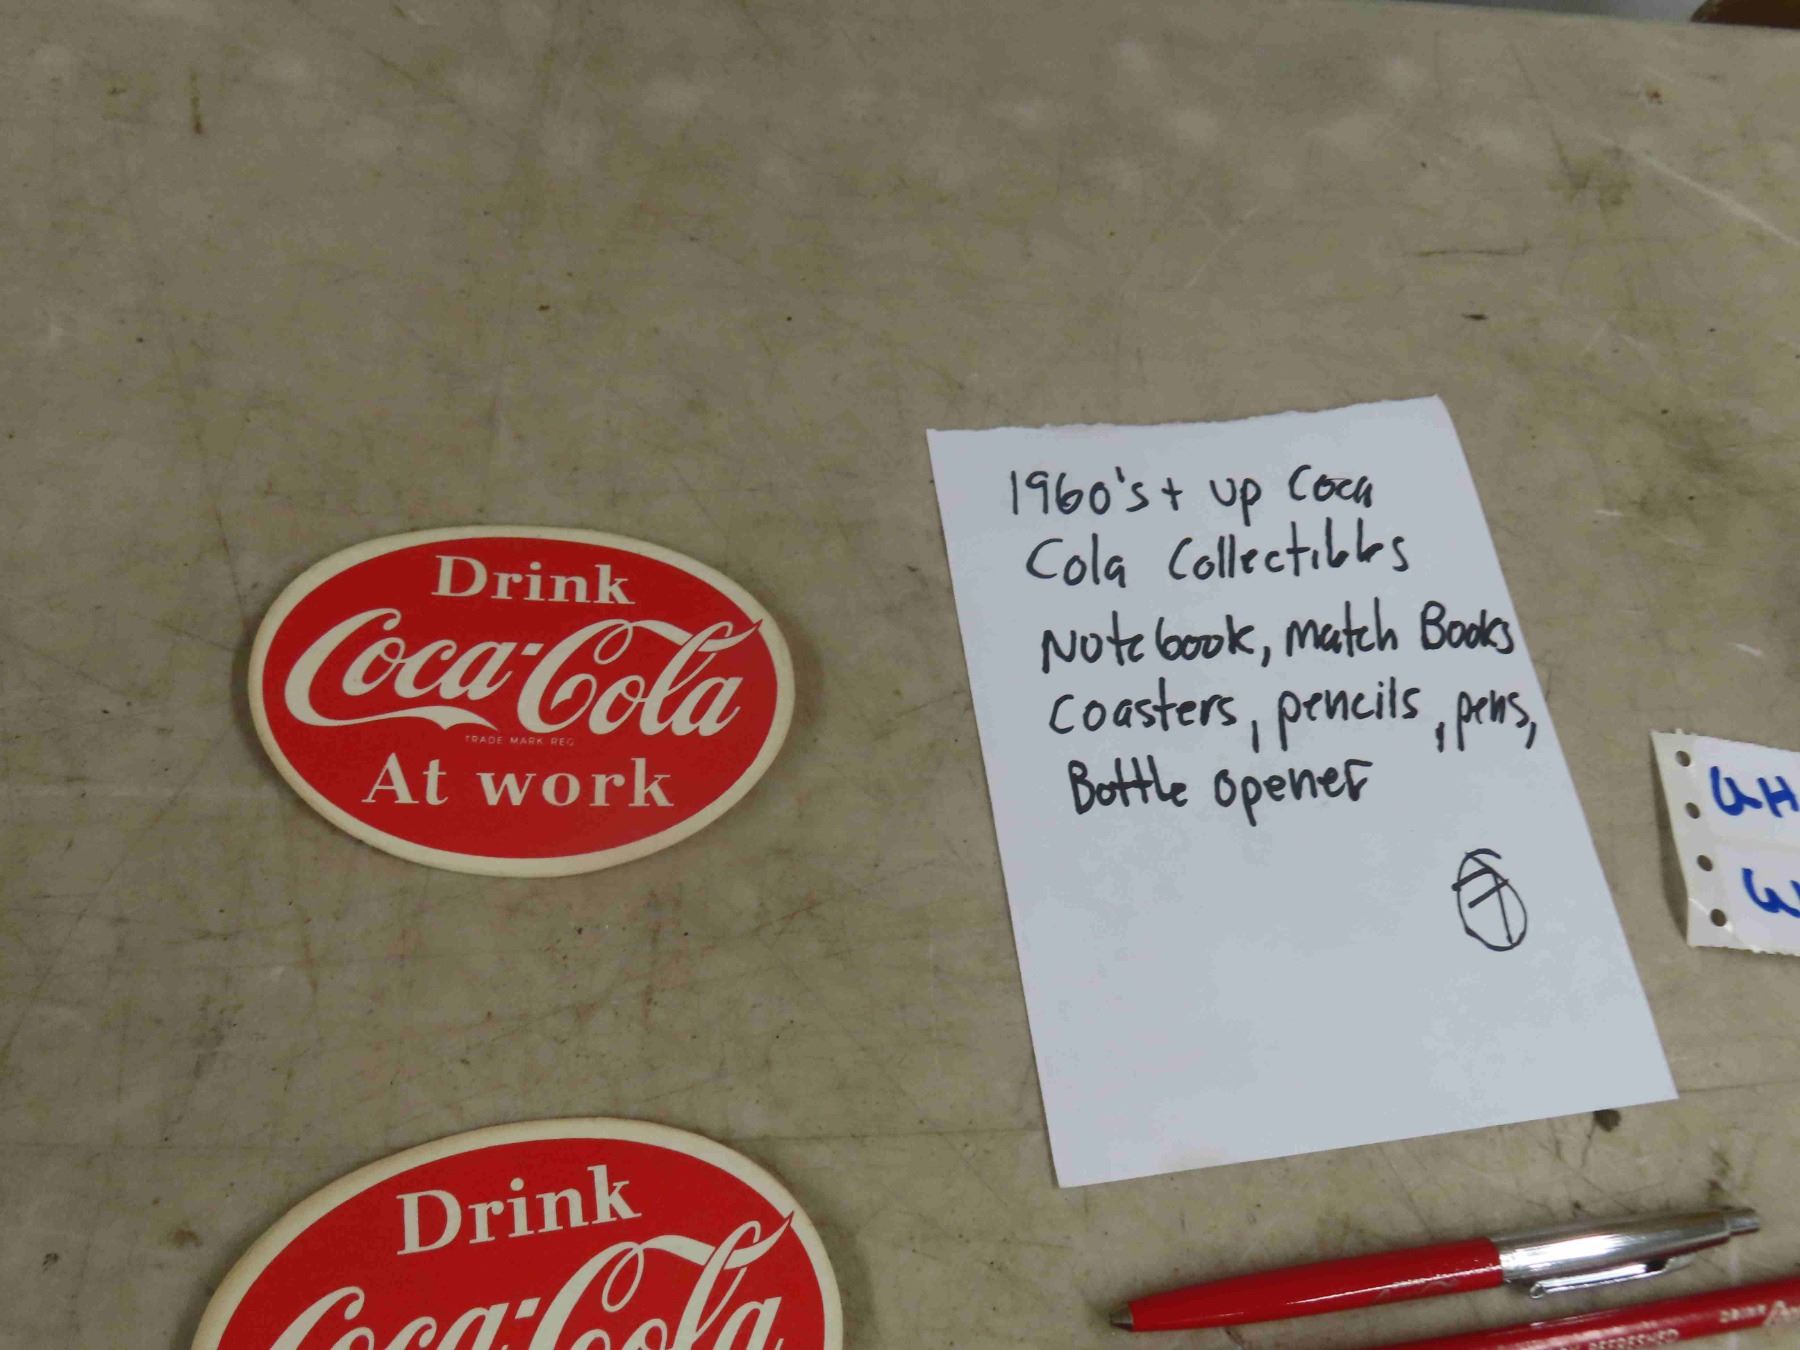 Drink
Coca-Cola
TRADE MARK REG
At work
1960's + up Coca
Cola Collectibles
Notebook, Match Books
Coasters, pencils, pens,
Bottle opener
Drink
Coca-Cola
REFRESHED